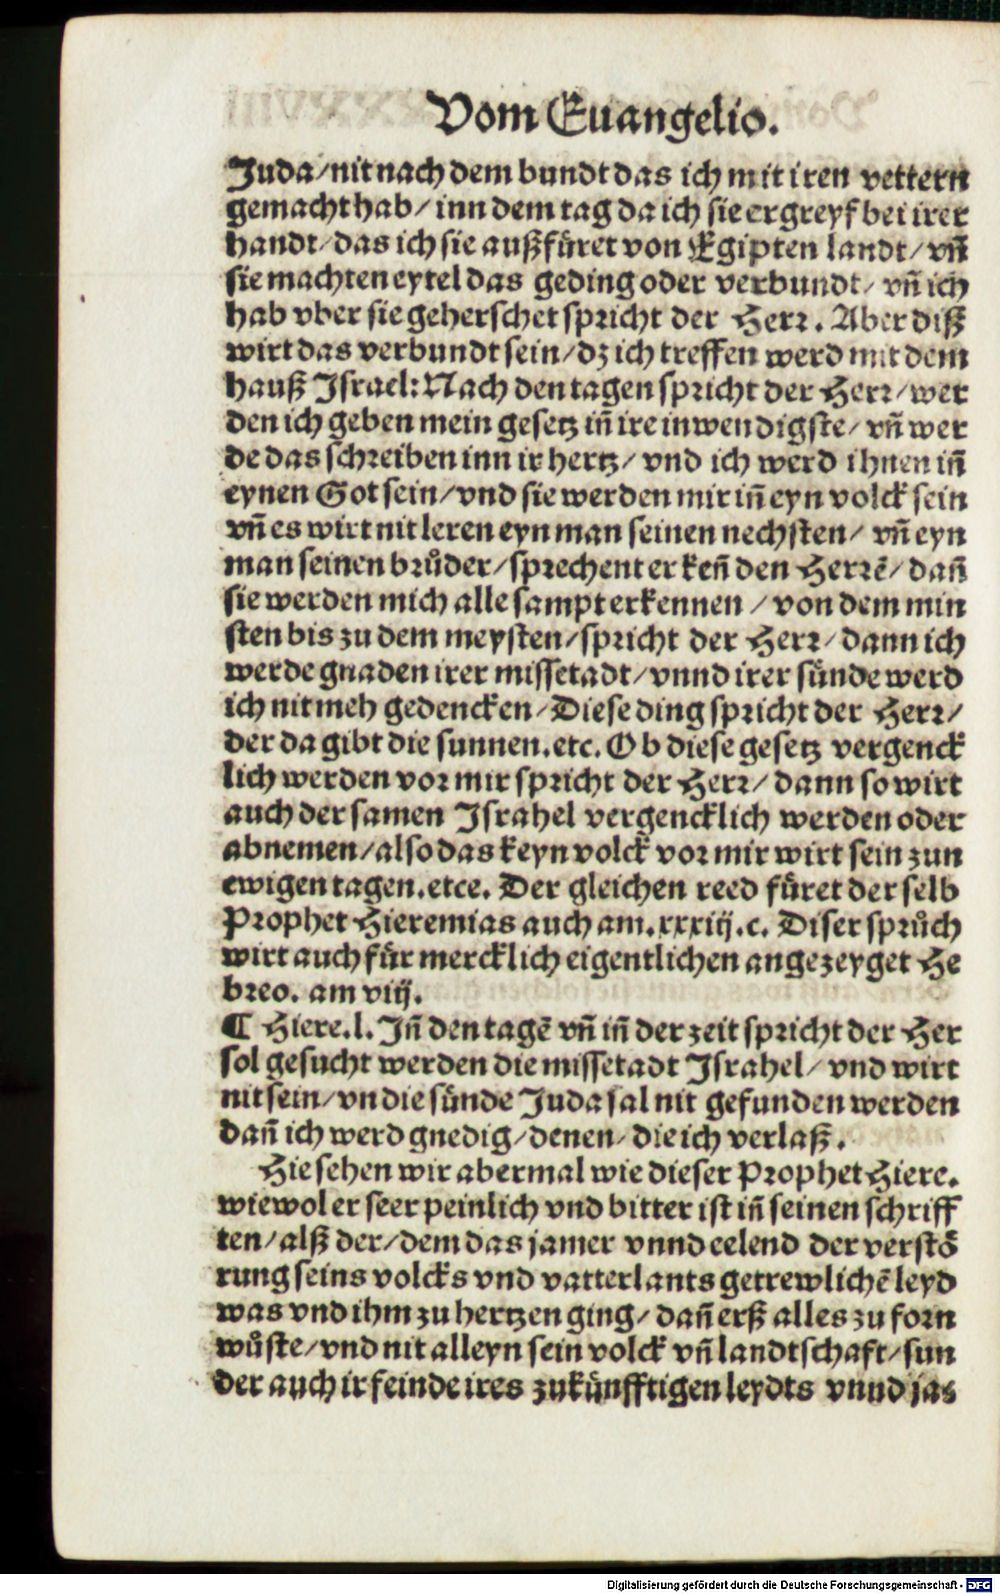 Vom Euangelio.
Juda/nit nach dem bundt das ich mit iren vettern
gemacht hab/ inn dem tag da ich sie ergreyf bei irer
handt/das ich sie außfüret von Egipten landt/vñ
sie machten eytel das geding oder verbundt/ vñ ich
hab vber sie geherschet spricht der Herr. Aber diß
wirt das verbundt sein/dz ich treffen werd mit dem
hauß Israel: Nach den tagen spricht der Herr/wer
den ich geben mein gesetz iñ ire inwendigste/ vñ wer
de das schreiben inn ir hertz/ vnd ich werd ihnen iñ
eynen Got sein/vnd sie werden mir iñ eyn volck sein
vñ es wirt nit leren eyn man seinen nechsten/ vñ eyn
man seinen brůder/sprechent erkeñ den Herrē/ dañ
sie werden mich alle sampt erkennen / von dem min
sten bis zu dem meysten/spricht der Herr/dann ich
werde gnaden irer missetadt/vnnd irer sünde werd
ich nit meh gedencken/Diese ding spricht der Herr/
der da gibt die sunnen.etc. Ob diese gesetz vergenck
lich werden vor mir spricht der Herr/ dann so wirt
auch der samen Israhel vergencklich werden oder
abnemen/also das keyn volck vor mir wirt sein zun
ewigen tagen.etce. Der gleichen reed füret der selb
Prophet Hieremias auch am.xxxiij.c. Diser sprůch
wirt auch für mercklich eigentlichen angezeyget He
breo. am viij.
¶ Hiere.l. Jñ den tagē vñ iñ der zeit spricht der Her
sol gesucht werden die missetadt Israhel/ vnd wirt
nit sein/vn die sünde Juda sal nit gefunden werden
dañ ich werd gnedig/denen/ die ich verlaß.
Hie sehen wir abermal wie dieser Prophet Hiere.
wiewol er seer peinlich vnd bitter ist iñ seinen schriff
ten/alß der/dem das jamer vnnd eelend der verstö
rung seins volcks vnd vatterlants getrewlichē leyd
was vnd ihm zu hertzen ging/ dañ erß alles zu forn
wůste/vnd nit alleyn sein volck vñ landtschaft/sun
der auch ir feinde ires zukünfftigen leydts vnnd jas
Digitalisierung gefördert durch die Deutsche Forschungsgemeinschaft - DFG